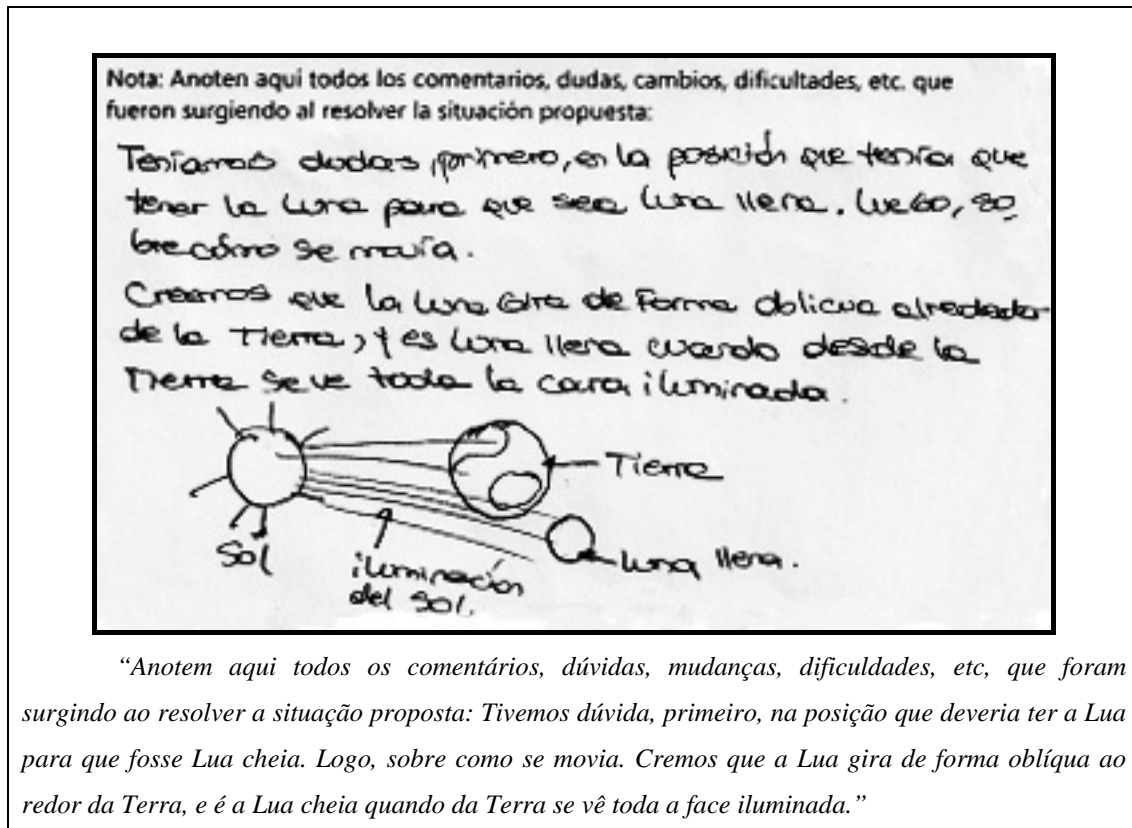 Nota: Anoten aquí todos los comentarios, dudas, cambios, dificultades, etc. que
fueron surgiendo al resolver la situación propuesta:
Teníamos dudas, primero, en la posición que tenía que
tener la luna para que sea luna llena. Luego, so
bre cómo se movía.
Creemos que la luna Gira de Forma oblicua alrededor
de la Tierra, y es luna llena cuando desde la
Tierra se ve toda la cara iluminada.
Tierra
Sol
luna llena.
iluminación
del sol.
“Anotem aqui todos os comentários, dúvidas, mudanças, dificuldades, etc, que foram
surgindo ao resolver a situação proposta: Tivemos dúvida, primeiro, na posição que deveria ter a Lua
para que fosse Lua cheia. Logo, sobre como se movia. Cremos que a Lua gira de forma oblíqua ao
redor da Terra, e é a Lua cheia quando da Terra se vê toda a face iluminada.”